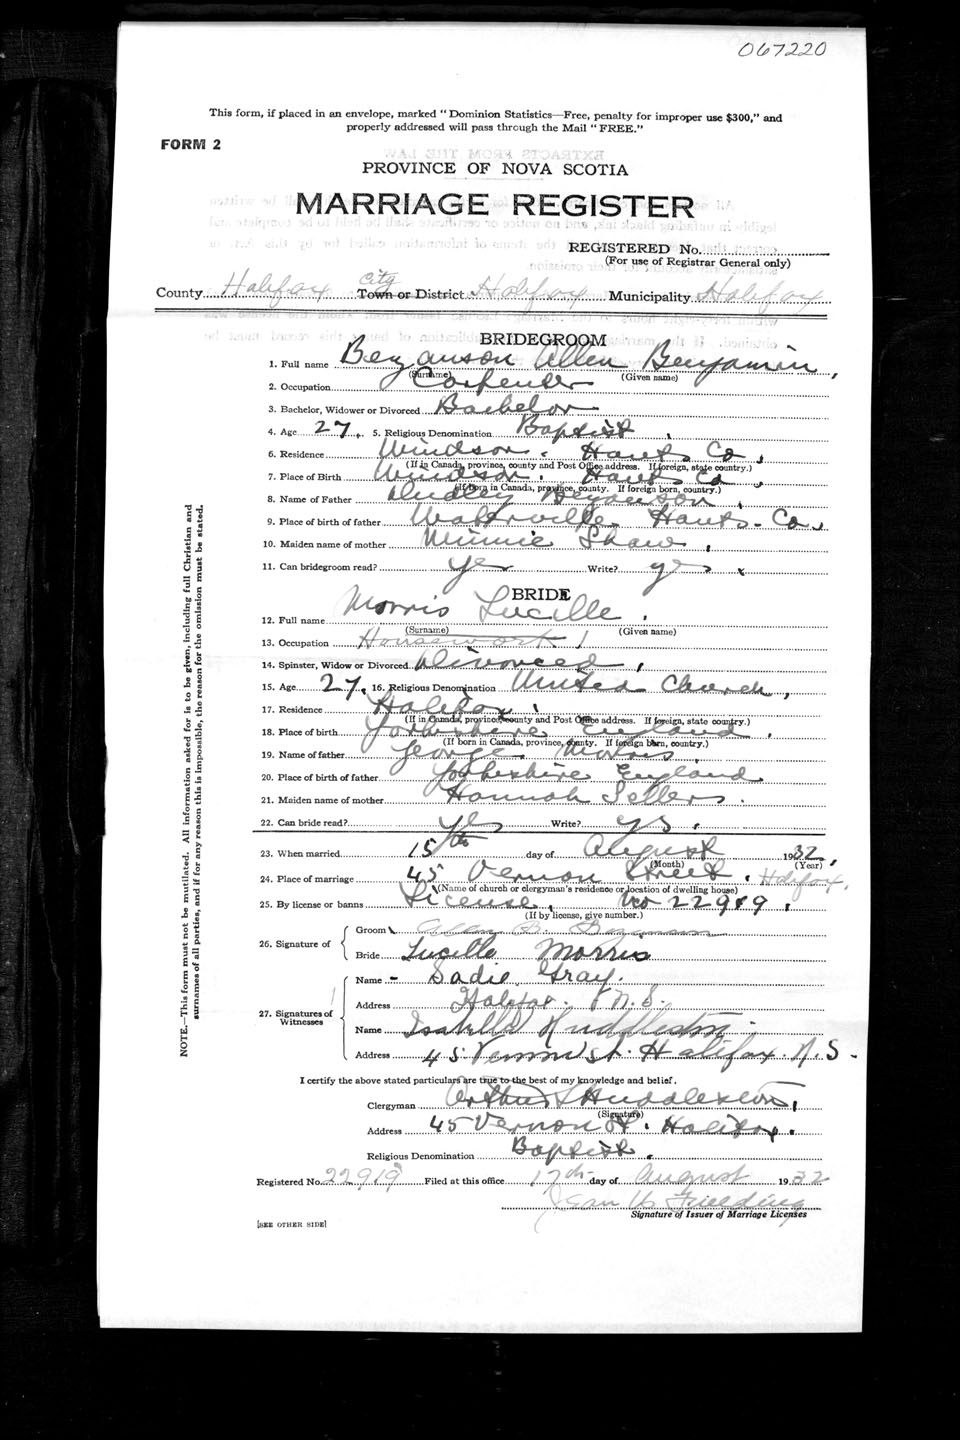 067220
This form, if placed in an envelope, marked "Dominion Statistics—Free, penalty for improper use $300," and
properly addressed will pass through the Mail "FREE."
FORM 2
PROVINCE OF NOVA SCOTIA
MARRIAGE REGISTER
REGISTERED No.
(For use of Registrar General only)
City
County Halifax Town or District Halifax Municipality Halifax
BRIDEGROOM
1. Full name Bezanson Allen Benjamin,
(Surname) (Given name)
2. Occupation Carpenter
3. Bachelor, Widower or Divorced Bachelor
4. Age 27. 5. Religious Denomination Baptist.
6. Residence Windsor. Hants Co,
(If in Canada, province, county and Post Office address. If foreign, state country.)
7. Place of Birth Windsor. Hants Co,
(If born in Canada, province, county. If foreign born, country.)
8. Name of Father Dudley Bezanson,
9. Place of birth of father Waterville Hants. Co,
10. Maiden name of mother Minnie Shaw,
11. Can bridegroom read? yes Write? yes
BRIDE
12. Full name Morris Lucille.
(Surname) (Given name)
13. Occupation Housework
14. Spinster, Widow or Divorced Divorced,
15. Age 27. 16. Religious Denomination United Church,
17. Residence Halifax.
(If in Canada, province, county and Post Office address. If foreign, state country.)
18. Place of birth Yorkshire England.
(If born in Canada, province, county. If foreign born, country.)
19. Name of father George Morris.
20. Place of birth of father Yorkshire England
21. Maiden name of mother Hannah Sellers.
22. Can bride read? yes Write? yes.
23. When married 15th day of August 1932,
(Month) (Year)
24. Place of marriage 45 Vernon Street. Halifax.
(Name of church or clergyman's residence or location of dwelling house)
25. By license or banns License, No 22919.
(If by license, give number.)
26. Signature of
Groom Allen B. Bezanson
Bride Lucille Morris
27. Signatures of Witnesses
Name - Sadie Gray.
Address Halifax. N.S.
Name Isabelle Huddleston.
Address 45 Vernon St. Halifax. N.S-
I certify the above stated particulars are true to the best of my knowledge and belief.
Clergyman Arthur Huddleston,
(Signature)
Address 45 Vernon St. Halifax.
Religious Denomination Baptist.
Registered No. 22919 Filed at this office 17th day of August 1932
Fielding
Signature of Issuer of Marriage Licenses
[SEE OTHER SIDE]
NOTE.—This form must not be mutilated. All information asked for is to be given, including full Christian and
surnames of all parties, and if for any reason this is impossible, the reason for the omission must be stated.